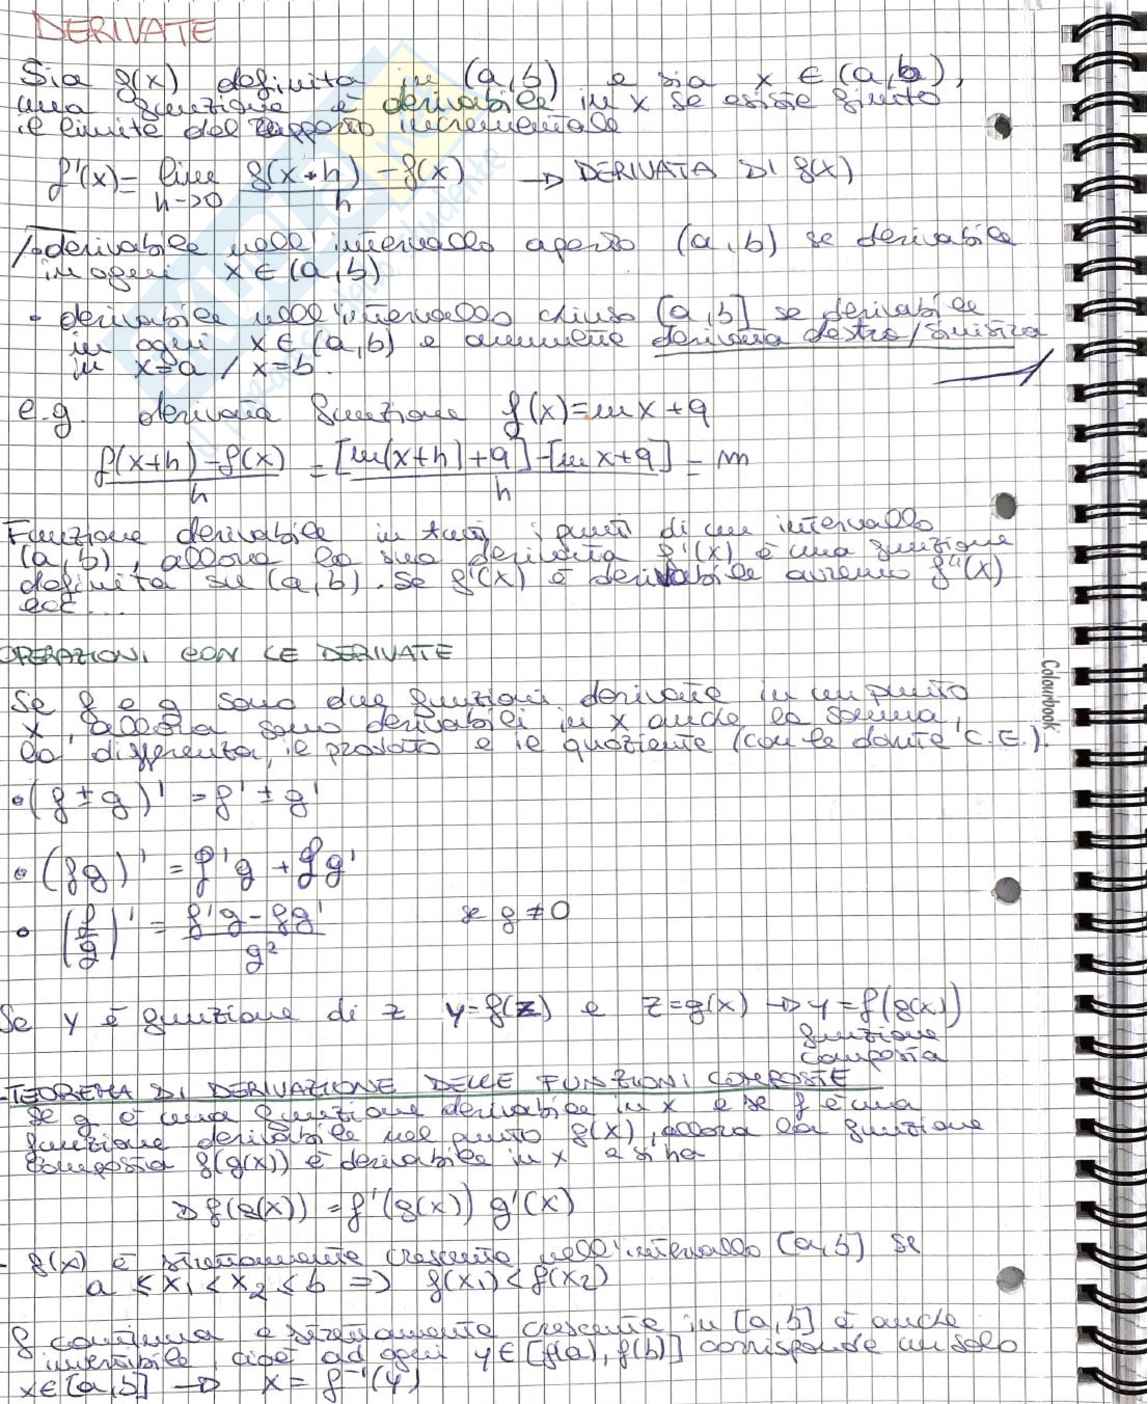 DERIVATE
Sia f(x) definita in (a,b) e sia x ∈ (a,b),
una funzione è derivabile in x se esiste finito
il limite del rapporto incrementale
f'(x) = lim h->0 f(x+h) - f(x) / h → DERIVATA DI f(x)
derivabile nell'intervallo aperto (a,b) se derivabile
in ogni x ∈ (a,b)
• derivabile nell'intervallo chiuso [a,b] se derivabile
in ogni x ∈ (a,b) e ammette derivata destra/sinistra
in x=a / x=b.
e.g. derivata funzione f(x)=mx+q
f(x+h)-f(x) / h = [m(x+h)+q]-[mx+q] / h = m
Funzione derivabile in tutti i punti di un intervallo
(a,b), allora la sua derivata f'(x) è una funzione
definita su (a,b). Se f'(x) è derivabile avremo f''(x)
ecc...
OPERAZIONI CON LE DERIVATE
Colourbook
Se f e g sono due funzioni derivate in un punto
x, allora sono derivabili in x anche la somma,
la differenza, il prodotto e il quoziente (con le dovute C.E.).
• (f ± g)' = f' ± g'
• (fg)' = f'g + fg'
• (f/g)' = f'g - fg' / g² se g ≠ 0
Se y è funzione di z y=f(z) e z=g(x) → y=f(g(x))
funzione
composta
-TEOREMA DI DERIVAZIONE DELLE FUNZIONI COMPOSTE
Se g è una funzione derivabile in x e se f è una
funzione derivabile nel punto g(x), allora la funzione
composta f(g(x)) è derivabile in x e si ha
D f(g(x)) = f'(g(x)) g'(x)
- f(x) è strettamente crescente nell'intervallo [a,b] se
a ≤ x₁ < x₂ ≤ b => f(x₁) < f(x₂)
f continua e strettamente crescente in [a,b] è anche
invertibile, cioè ad ogni y ∈ [f(a), f(b)] corrisponde un solo
x ∈ [a,b] → x = f⁻¹(y)